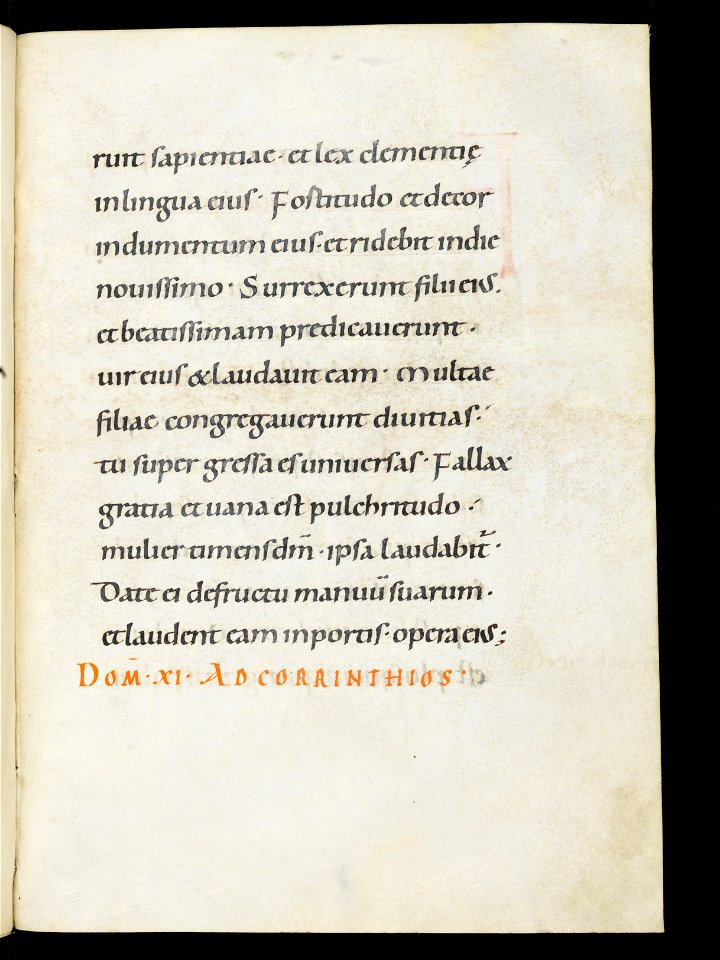 runt sapientiae · et lex clementię
inlingua eius · Fostitudo et decor
indumentum eius · et ridebit indie
nouissimo · Surrexerunt filii eius.
et beatissimam predicauerunt ·
uir eius & laudauit eam · Multae
filiae congregauerunt diuitias ·
tu super gressa es uniuersas · Fallax
gratia et uana est pulchritudo ·
mulier timens dm̄ · ipsa laudabit̄ ·
Date ei defructu manuū suarum ·
et laudent eam inportis · opera eius;
Dom̄ · XI · AD CORRINTHIOS ·